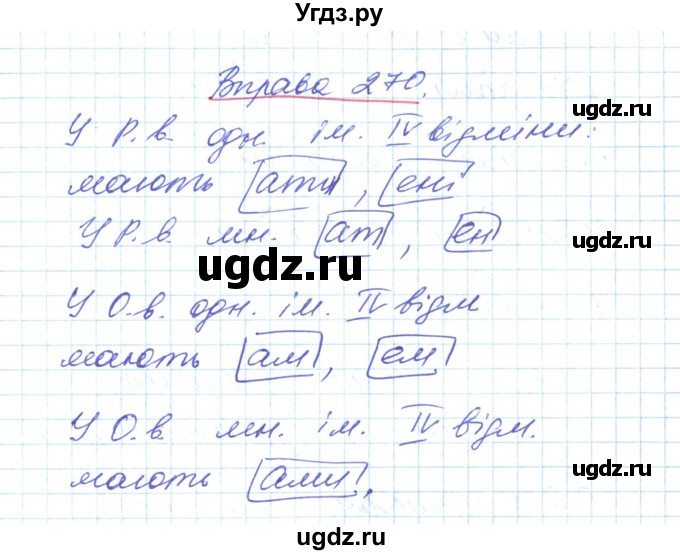 Угдз.ру
Вправа 270.
ugdz.ru
У Р.в. одн. ім. IV відміни:
мають ати, ені
У Р.в. мн. ат, ен
ugdz.ru
ugdz.ru
У О.в. одн. ім. IV відм
мають ам, ем
ugdz.ru
У О.в. мн. ім. IV відм.
мають ами,
ugdz.ru
ugdz.ru